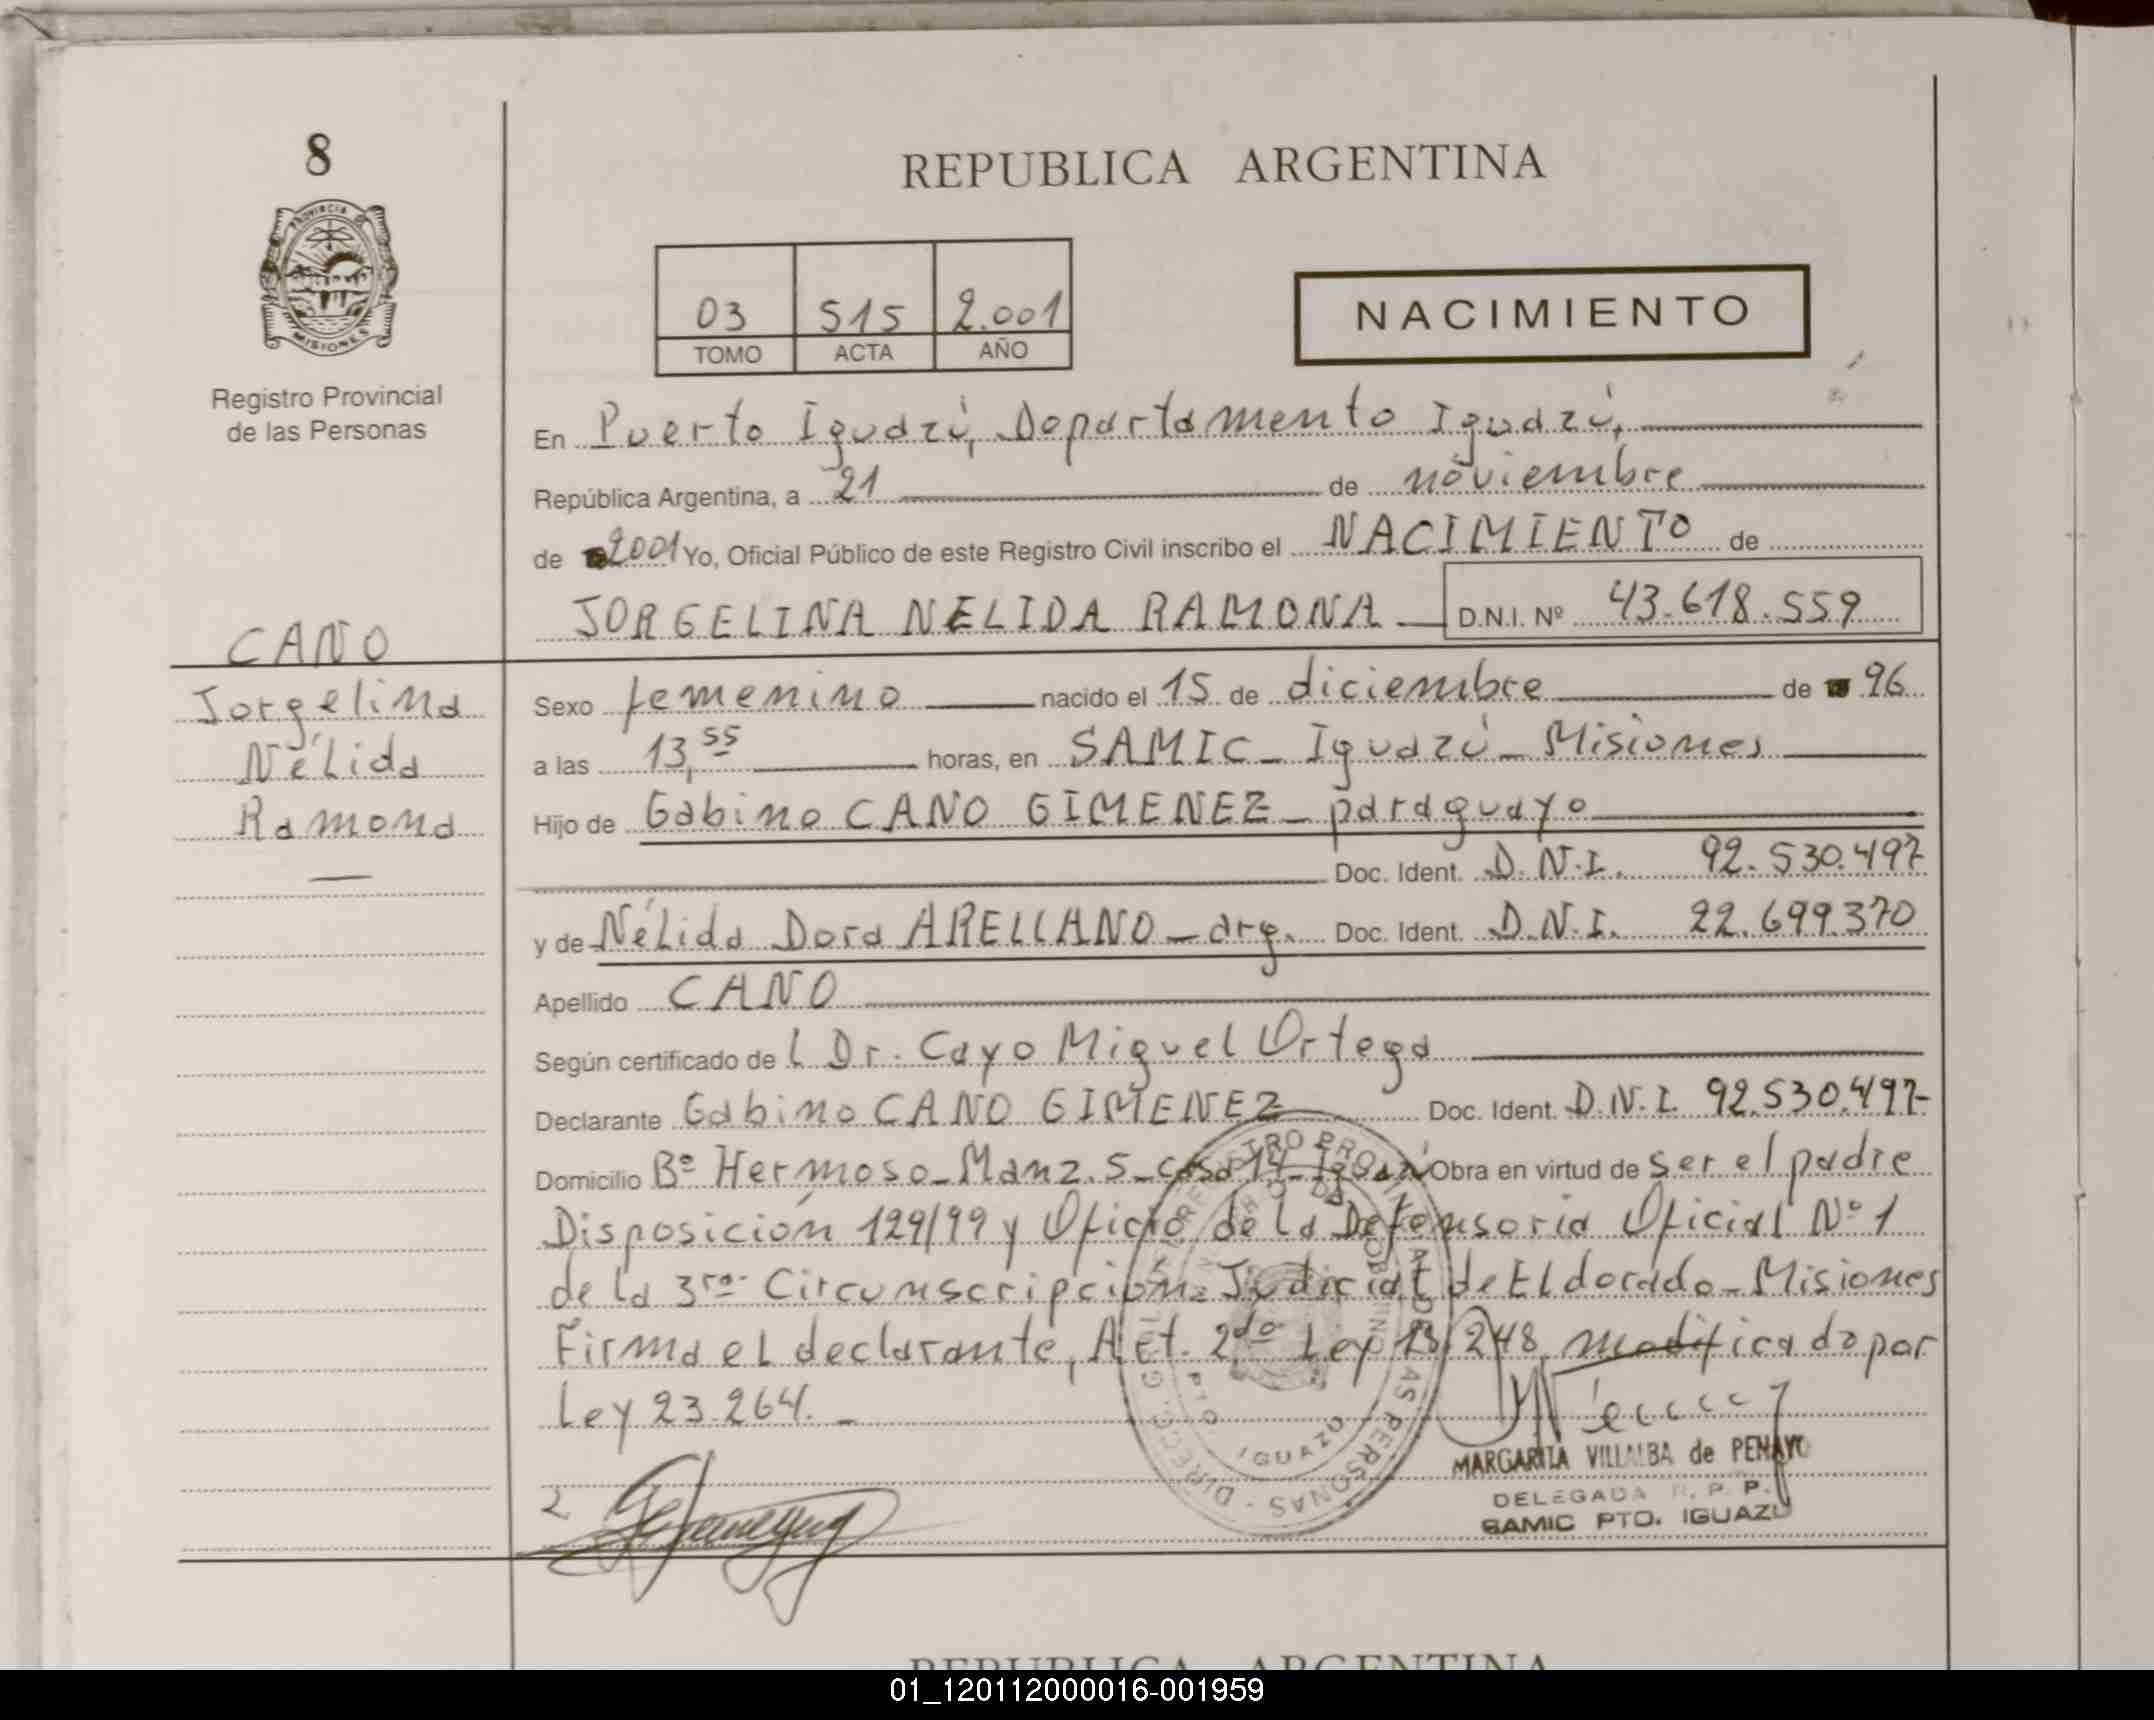 8
REPUBLICA ARGENTINA
PROVINCIA DE MISIONES
03 515 2.001
TOMO ACTA AÑO
NACIMIENTO
Registro Provincial
de las Personas
En Puerto Iguazú, Departamento Iguazú,
República Argentina, a 21 de noviembre
de 2001 Yo, Oficial Público de este Registro Civil inscribo el NACIMIENTO de
JORGELINA NELIDA RAMONA D.N.I. Nº 43.618.559
CANO
Jorgelina
Nélida
Ramona
Sexo femenino nacido el 15 de diciembre de 96
a las 13,55 horas, en SAMIC - Iguazú - Misiones
Hijo de Gabino CANO GIMENEZ - paraguayo
Doc. Ident. D.N.I. 92.530.497
y de Nélida Dora ARELLANO - arg. Doc. Ident. D.N.I. 22.699.370
Apellido CANO
Según certificado de l Dr. Cayo Miguel Ortega
Declarante Gabino CANO GIMENEZ Doc. Ident. D.N.I. 92.530.497-
Domicilio Bº Hermoso - Manz. 5 - casa 14 - Obra en virtud de ser el padre
Disposición 129/99 y Oficio de la Defensoria Oficial Nº 1
de la 3ra. Circunscripción Judicial de Eldorado - Misiones
Firma el declarante, Art. 2do Ley 18.248 modificado por
Ley 23.264. -
PTO. IGUAZU
MARGARITA VILLALBA de PENAYO
DELEGADA R. P. P.
SAMIC PTO. IGUAZU
2
REPUBLICA ARGENTINA
01_120112000016-001959